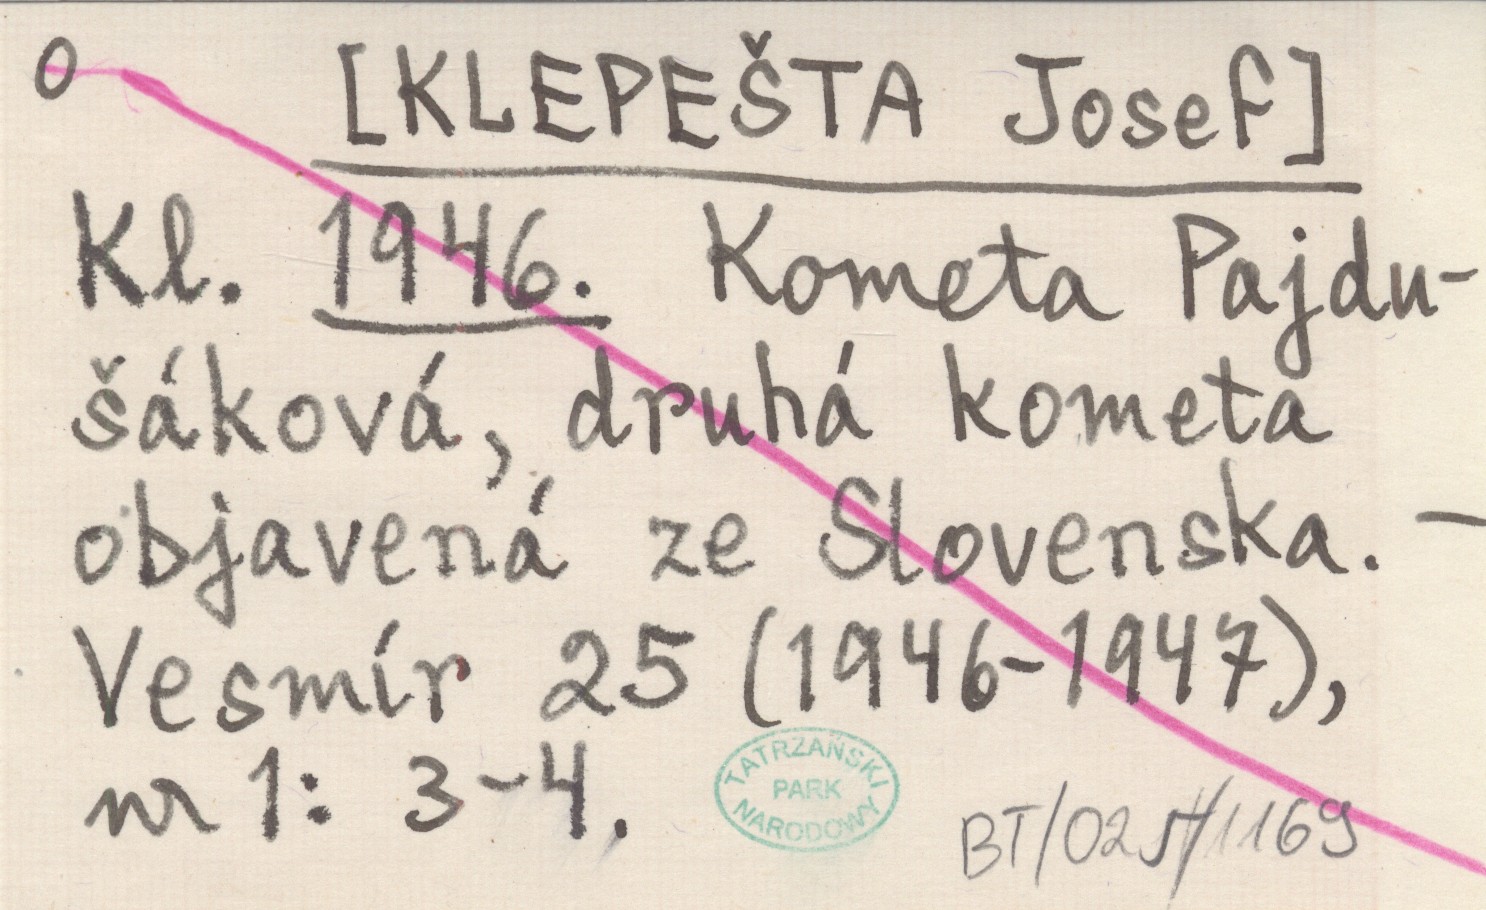 O
[KLEPEŠTA Josef]
Kl. 1946. Kometa Pajdu-
šáková, druhá kometa
objavená ze Slovenska. —
Vesmír 25 (1946-1947),
nr 1: 3-4.
TATRZAŃSKI
PARK
NARODOWY
BT/025/1169